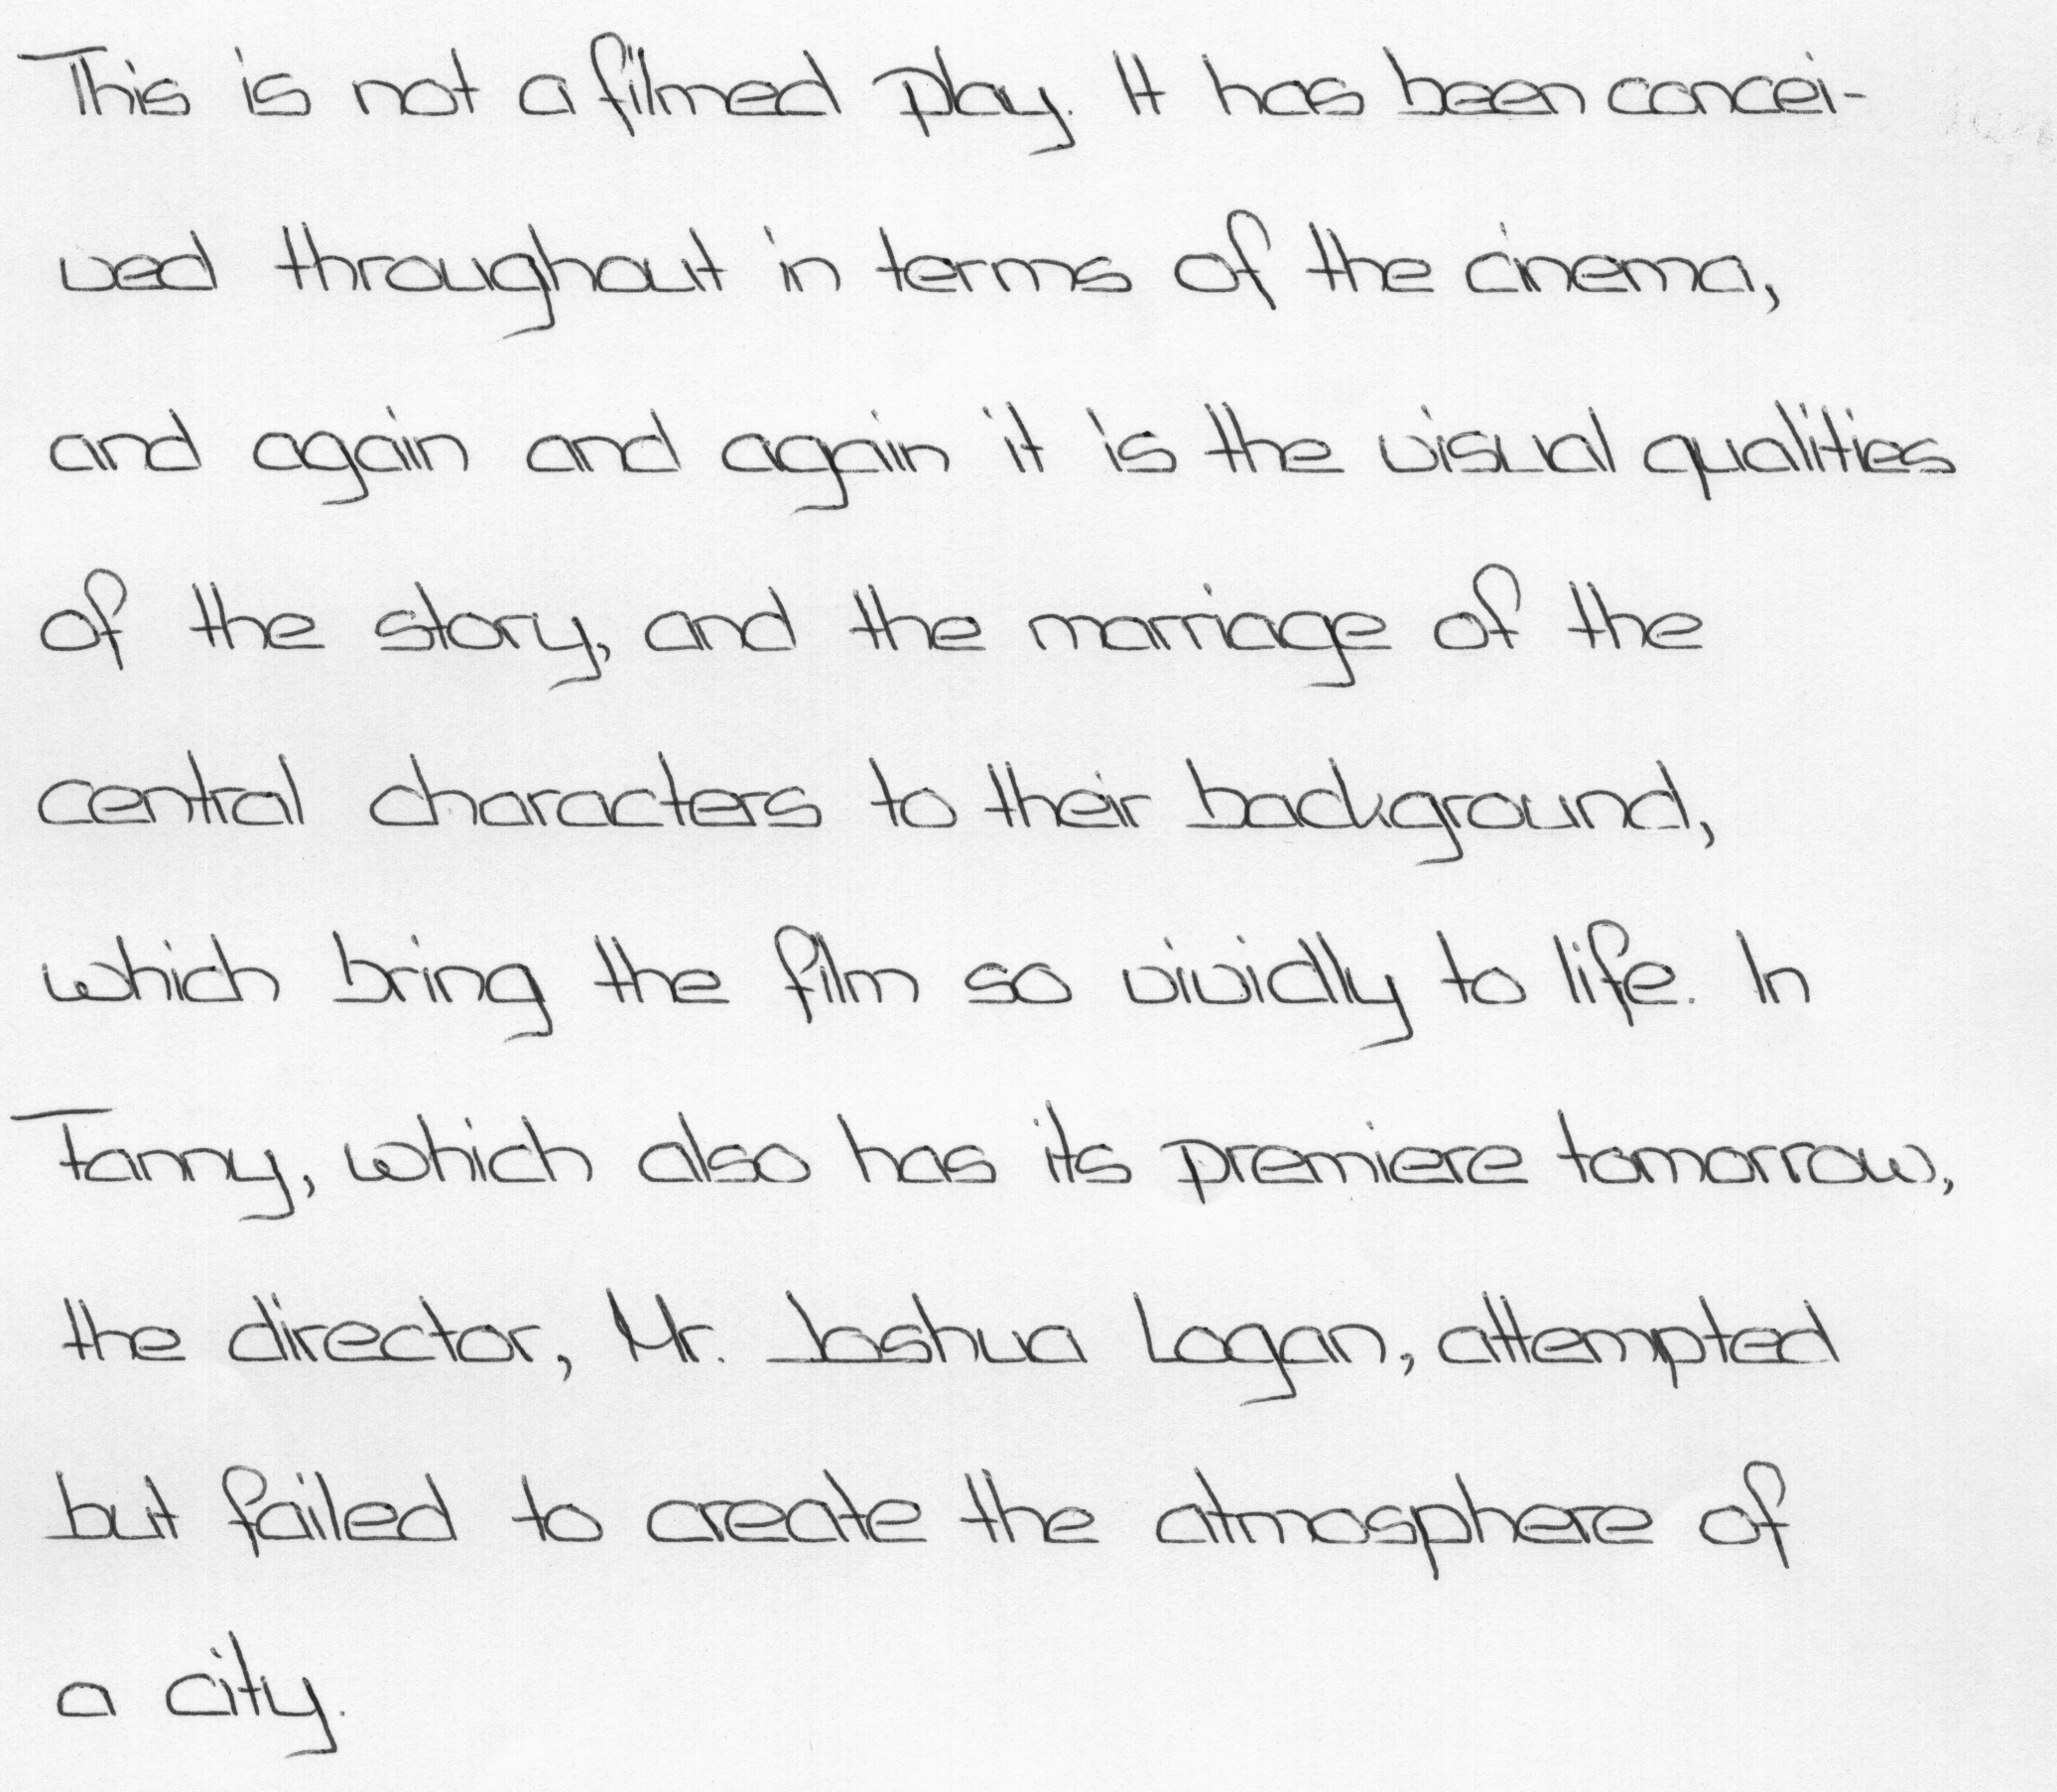 This is not a filmed play. It has been concei-
ved throughout in terms of the cinema,
and again and again it is the visual qualities
of the story, and the marriage of the
central characters to their background,
which bring the film so vividly to life. In
Fanny, which also has its premiere tomorrow,
the director, Mr. Joshua Logan, attempted
but failed to create the atmosphere of
a city.